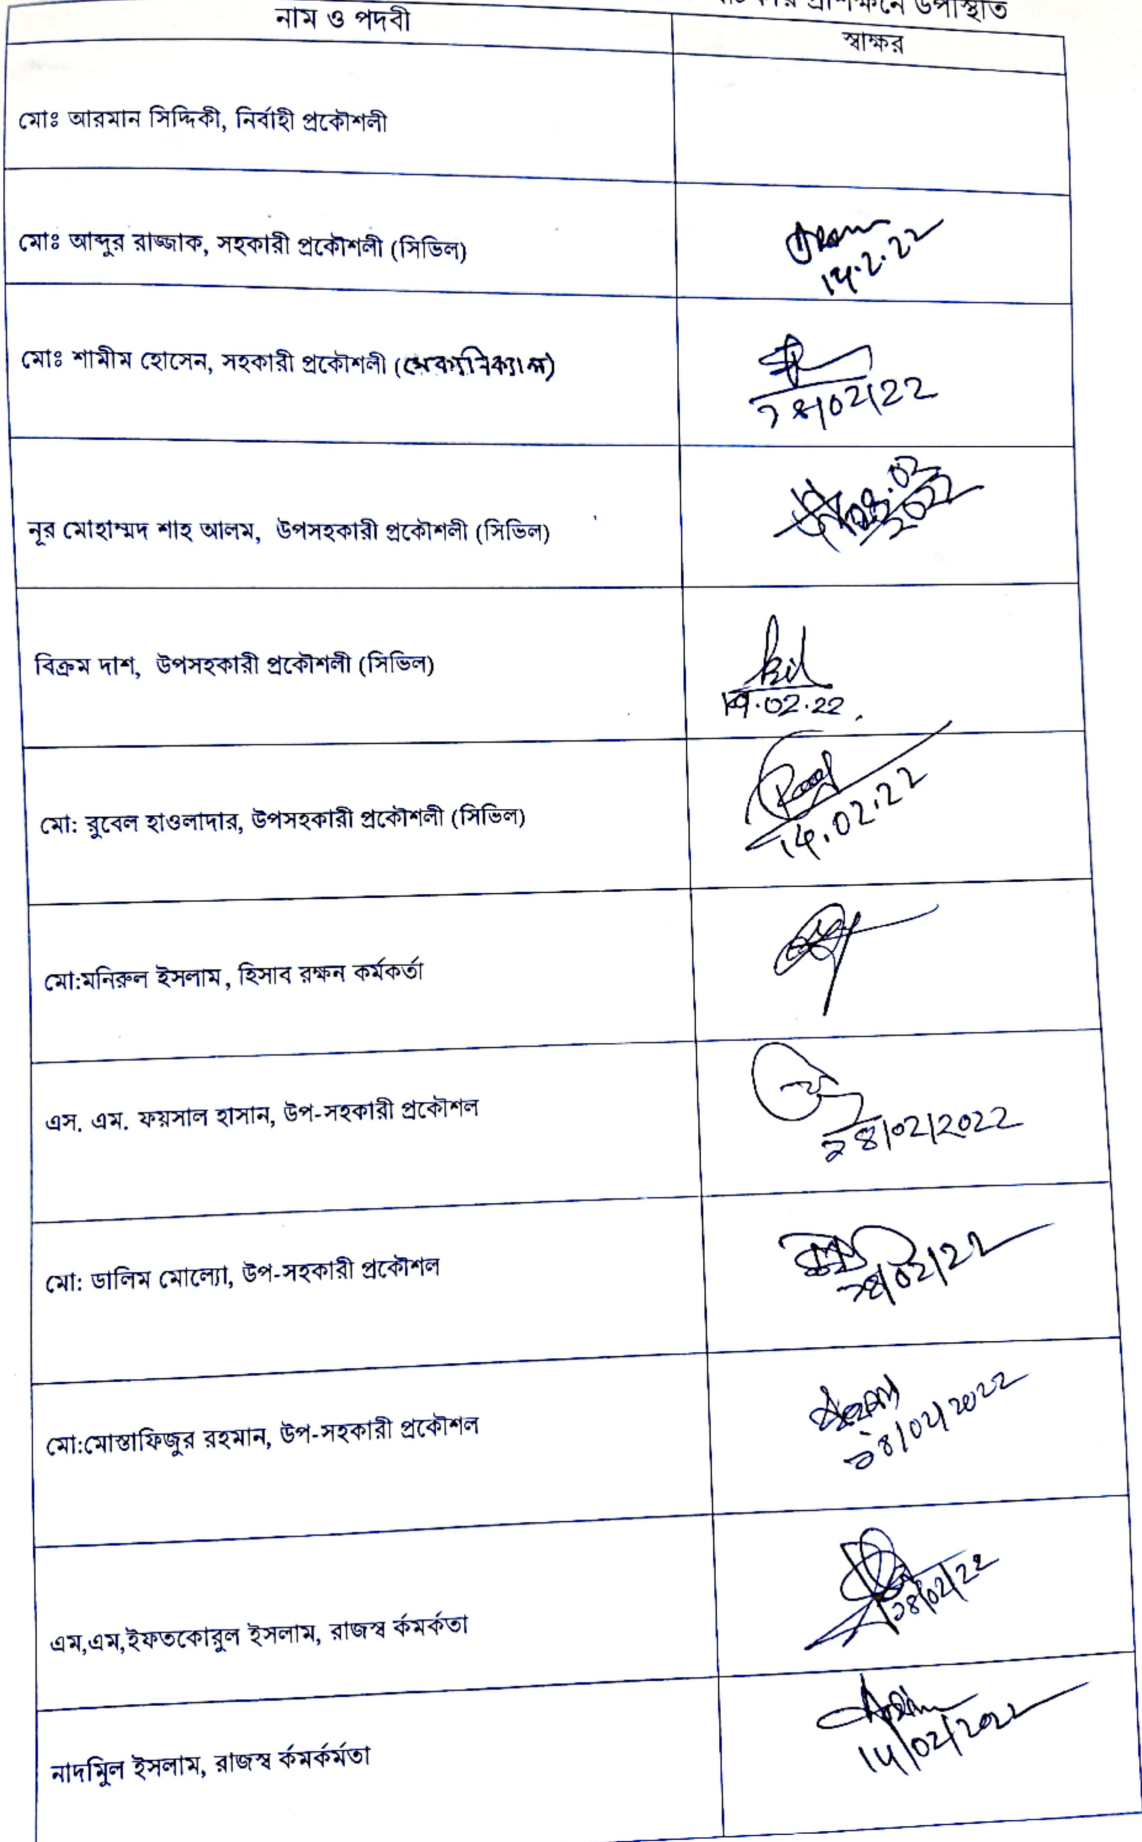 প্রশিক্ষনে উপস্থিত
নাম ও পদবী
স্বাক্ষর
মোঃ আরমান সিদ্দিকী, নির্বাহী প্রকৌশলী
মোঃ আব্দুর রাজ্জাক, সহকারী প্রকৌশলী (সিভিল)
14.2.22
মোঃ শামীম হোসেন, সহকারী প্রকৌশলী (মেকানিক্যাল)
১৪/02/22
নূর মোহাম্মদ শাহ আলম, উপসহকারী প্রকৌশলী (সিভিল)
2022
বিক্রম দাশ, উপসহকারী প্রকৌশলী (সিভিল)
14.02.22
মো: রুবেল হাওলাদার, উপসহকারী প্রকৌশলী (সিভিল)
14.02.22
মো:মনিরুল ইসলাম, হিসাব রক্ষন কর্মকর্তা
এস. এম. ফয়সাল হাসান, উপ-সহকারী প্রকৌশল
১৪/০2/2022
মো: ডালিম মোল্যো, উপ-সহকারী প্রকৌশল
১৪/02/22
মো:মোস্তাফিজুর রহমান, উপ-সহকারী প্রকৌশল
১৪/০২/২০২২
এম,এম,ইফতকোরুল ইসলাম, রাজস্ব র্কমর্কতা
১৪/০২/২২
নাদমিুল ইসলাম, রাজস্ব র্কমর্কর্মতা
14/02/2022